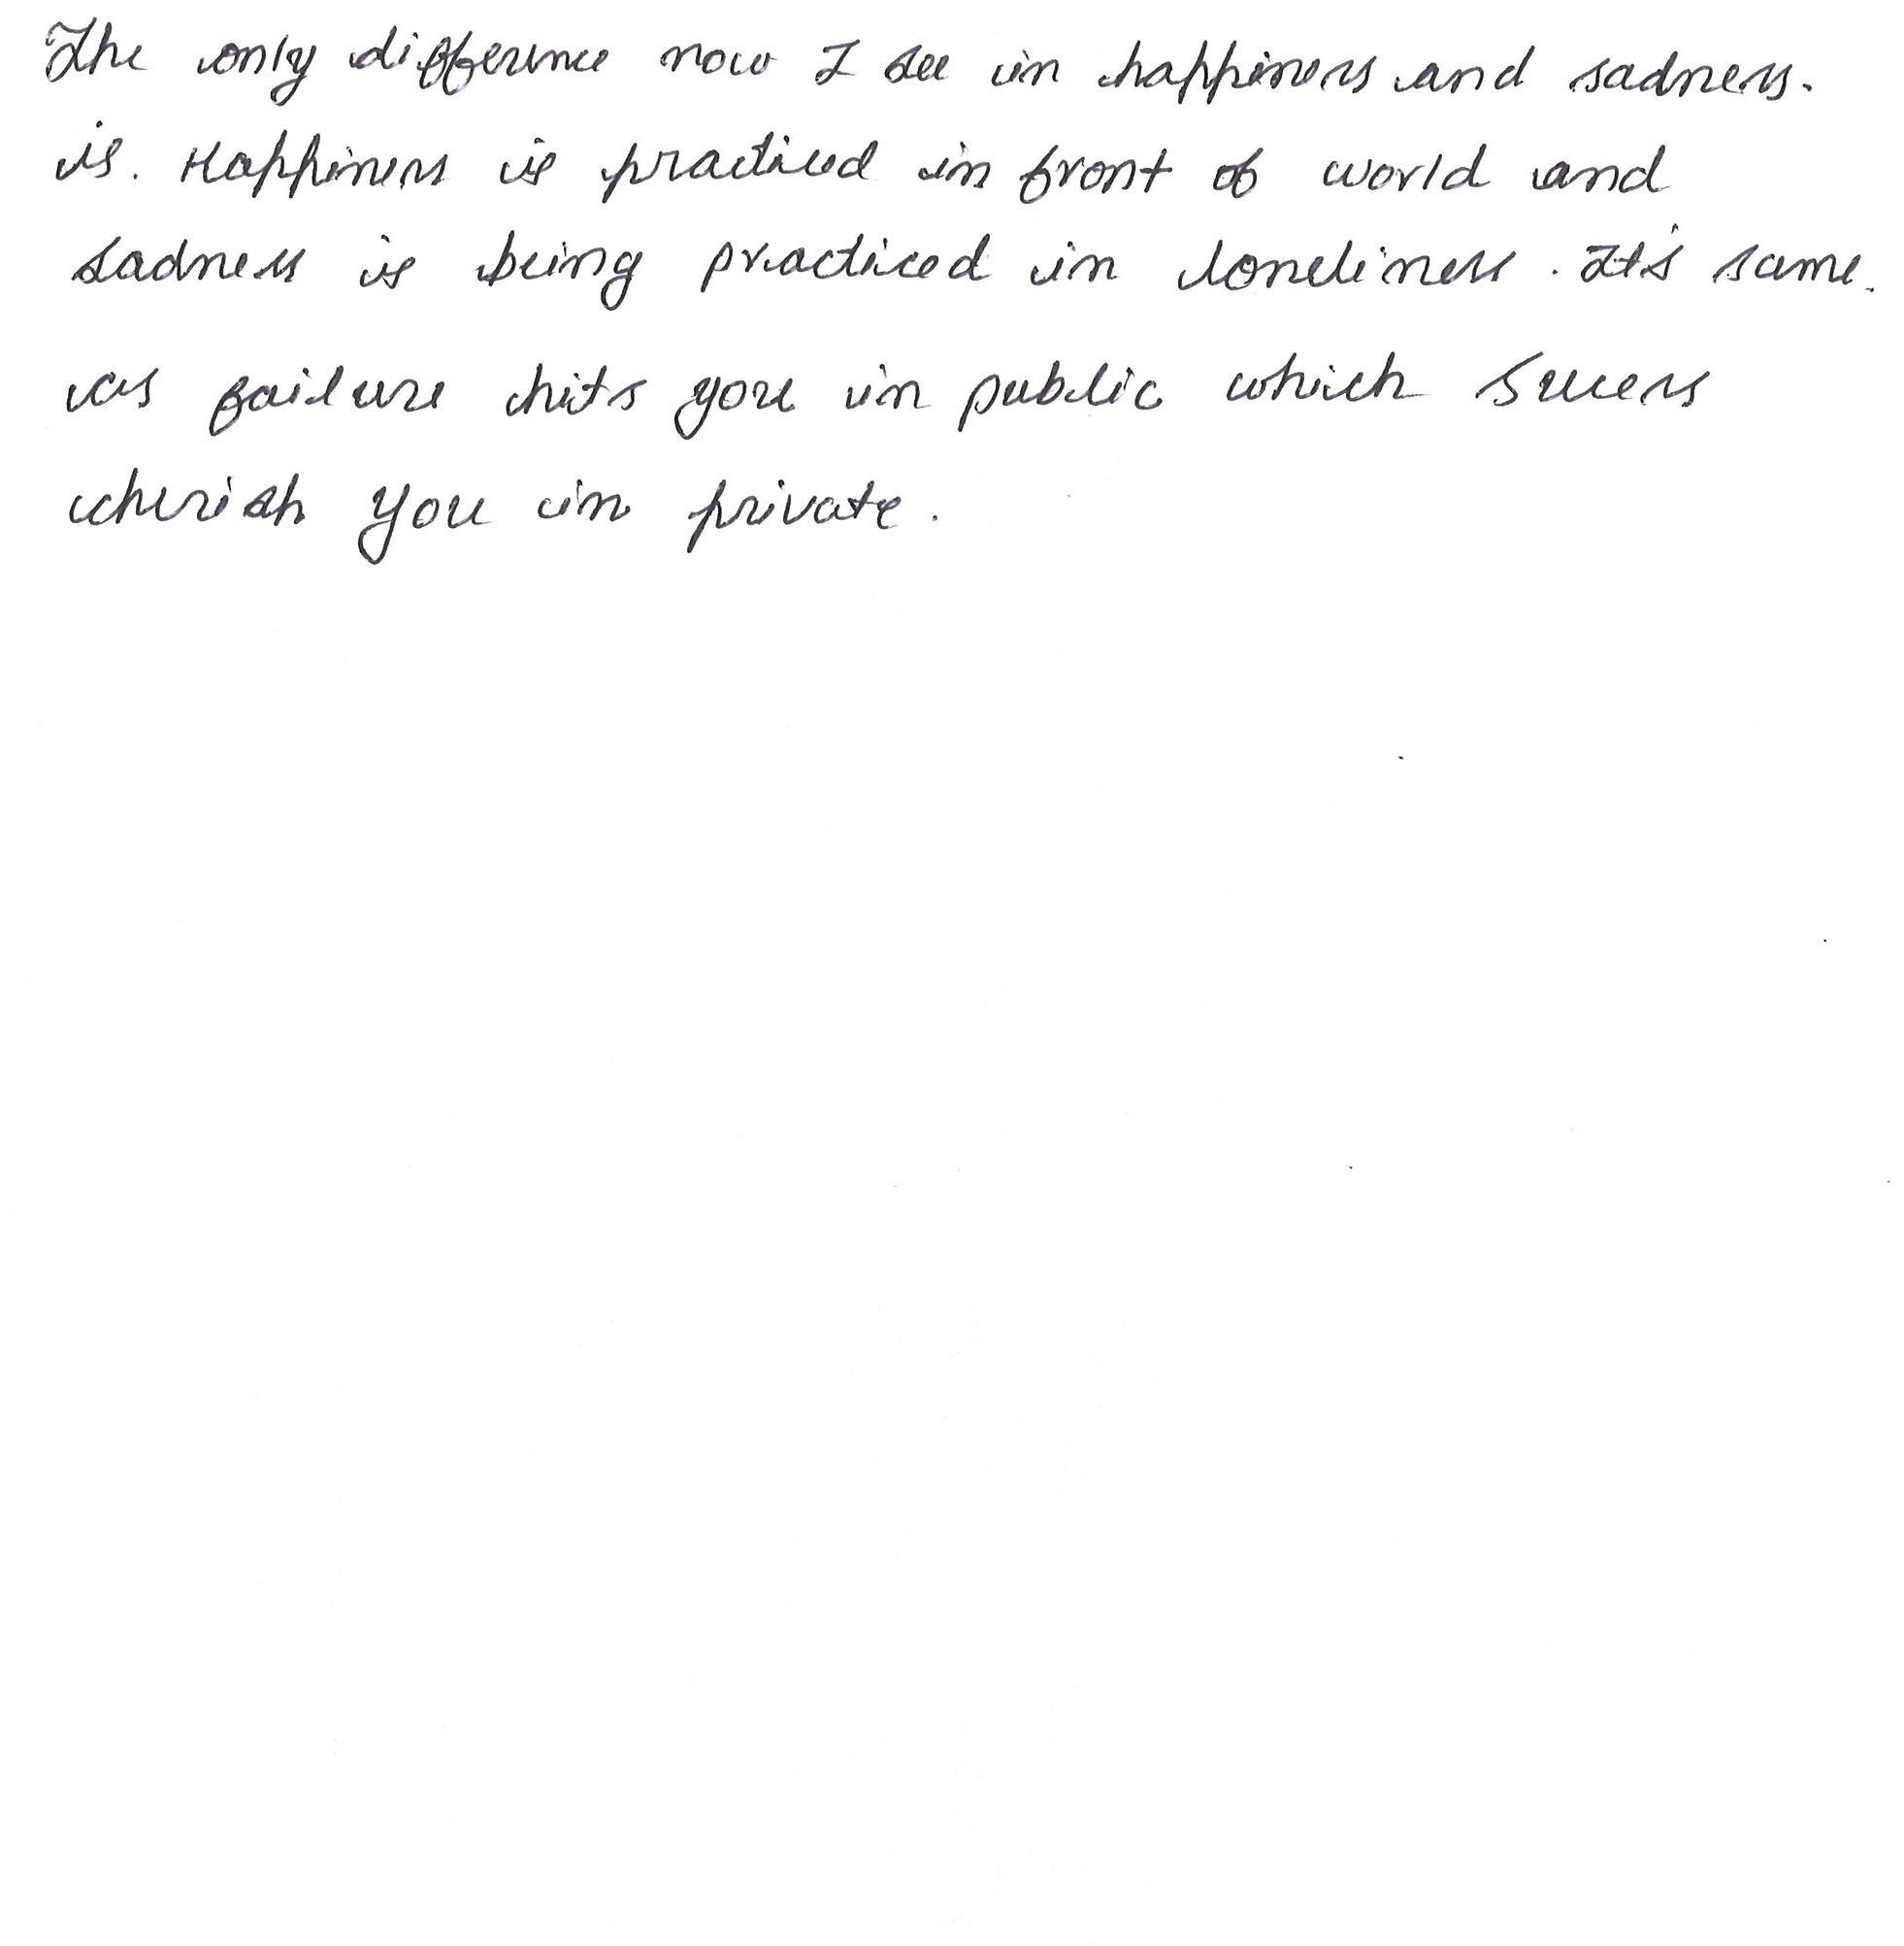 The only difference now I see in happiness and sadness.
is. Happiness is practiced in front of world and
sadness is being practiced in loneliness. It's same.
as failure hits you in public which Sucess
cherish you in private.